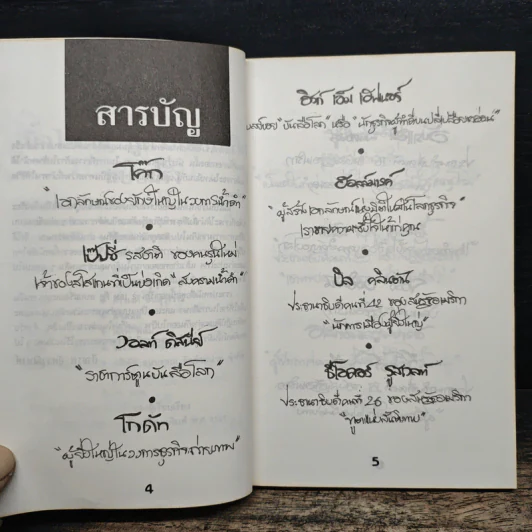 สารบัญ
โค้ก
"เอกลักษณ์ของยักษ์ใหญ่ในวงการน้ำดำ"
เป๊ปซี่ รสชาติ ของคนรุ่นใหม่
เจ้าของสโลแกนที่เป็นบ่อเกิด "สงครามน้ำดำ"
วอลท์ ดิสนีย์
"ราชาการ์ตูนบันลือโลก"
โกดัก
"ผู้ยิ่งใหญ่ในวงการธุรกิจถ่ายภาพ"
4
ฮิวก์ เอ็ม เฮฟเนอร์
"บันลือโลก" หรือ
ฮอลล์มาร์ค
"ผู้สร้างเอกลักษณ์
บิล คลินตัน
ประธานาธิบดีคนที่ 42 ของสหรัฐอเมริกา
"นักการเมืองผู้ยิ่งใหญ่"
ธีโอดอร์ รูสเวลท์
ประธานาธิบดีคนที่ 26 ของสหรัฐอเมริกา
"ทูตแห่งสันติภาพ"
5